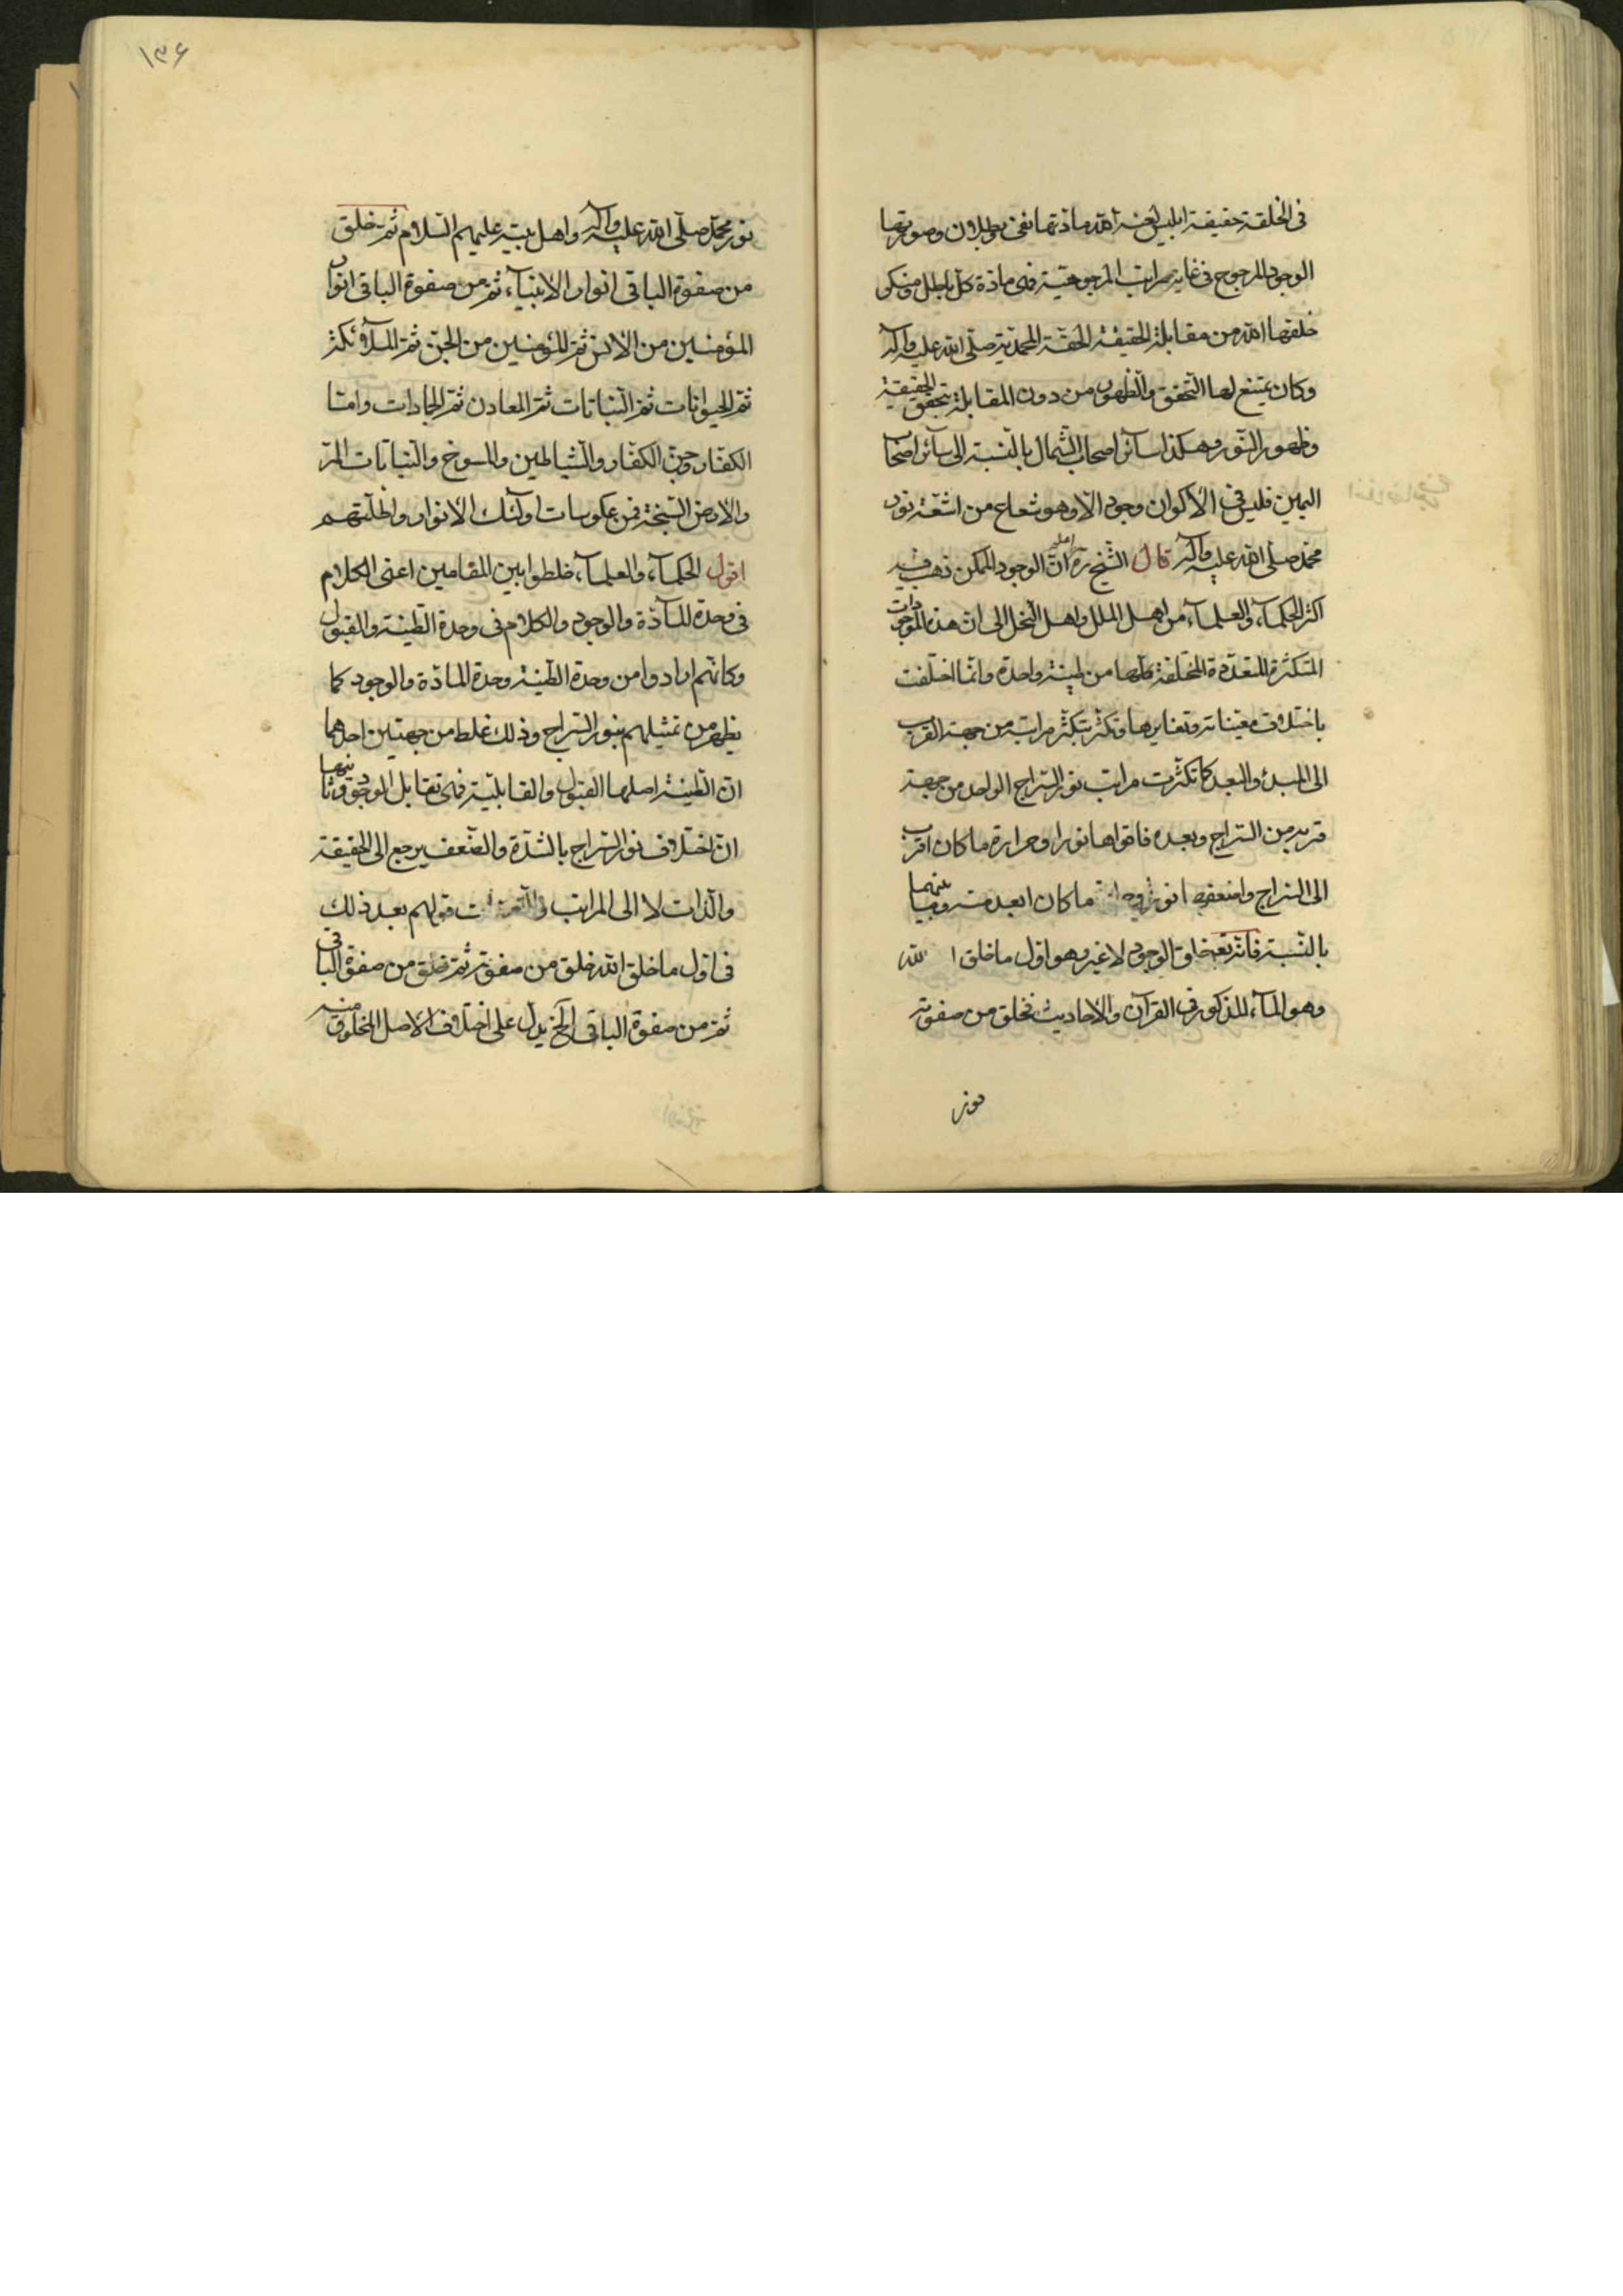 فى الخلقة حقيقة ابليس لعنه الله مادتها نفى بطلان وصورتها
الوجود المرجوح فى غاية مراتب المرجوحية فهى مادة كل باطل ومنكر
خلقها الله من مقابلة الحقيقة الحقة المحمدية صلى الله عليه وآله
وكان يمتنع لها التحقق والظهور من دون المقابلة بتحقق الحقيقة
وظهور النور وهكذا سائر اصحاب الشمال بالنسبة الى سائر اصحاب
اليمين فليس فى الاكوان وجود الا وهو شعاع من اشعة نور
محمد صلى الله عليه وآله قال الشيخ ره ان الوجود الممكن ذهب فيه
اكثر الحكماء والعلماء من اهل الملل واهل النحل الى ان هذه الموجودات
المتكثرة المتعددة المختلفة كلها من طينة واحدة وانما اختلفت
باختلاف معيناته وتغايرها وتكثر بتكثر مراتبه من جهة القرب
الى المبدء والبعد كما تكثرت مراتب نور السراج الواحد من جهة
قربه من السراج وبعده فاقواها نورا وحرارة ما كان اقرب
الى السراج واضعفها نورا ما كان ابعد منه وما بينهما
بالنسبة فانه تع خلق الوجود لا غير وهو اول ما خلق الله
وهو الماء المذكور فى القرآن والاحاديث فخلق من صفوته
نور
١٣۶
نور محمد صلى الله عليه وآله واهل بيته عليهم السلام ثم خلق
من صفوة الباقى انوار الانبياء ثم من صفوة الباقى انوار
المؤمنين من الانس ثم المؤمنين من الجن ثم الملائكة
ثم الحيوانات ثم النباتات ثم المعادن ثم الجمادات واما
الكفار وجن الكفار والشياطين والمسوخ والنباتات المرّ
والارض السبخة فمن عكوسات اولئك الانوار واظلتهم
اقول الحكماء والعلماء خلطوا بين المقامين اعنى الكلام
فى وحدة المادة والوجود والكلام فى وحدة الطينة والقبول
وكانهم ارادوا من وحدة الطينة وحدة المادة والوجود كما
يظهر من تمثيلهم بنور السراج وذلك غلط من جهتين احدهما
ان الطينة اصلها القبول والقابلية فهى تقابل الوجود وثانيهما
ان اختلاف نور السراج بالشدة والضعف يرجع الى الحقيقة
والذات لا الى المراتب قولهم بعد ذلك
فى اول ما خلق الله خلق من صفوته ثم خلق من صفوة الباقى
ثم من صفوة الباقى الخ يدل على اختلاف الاصل المخلوق منه